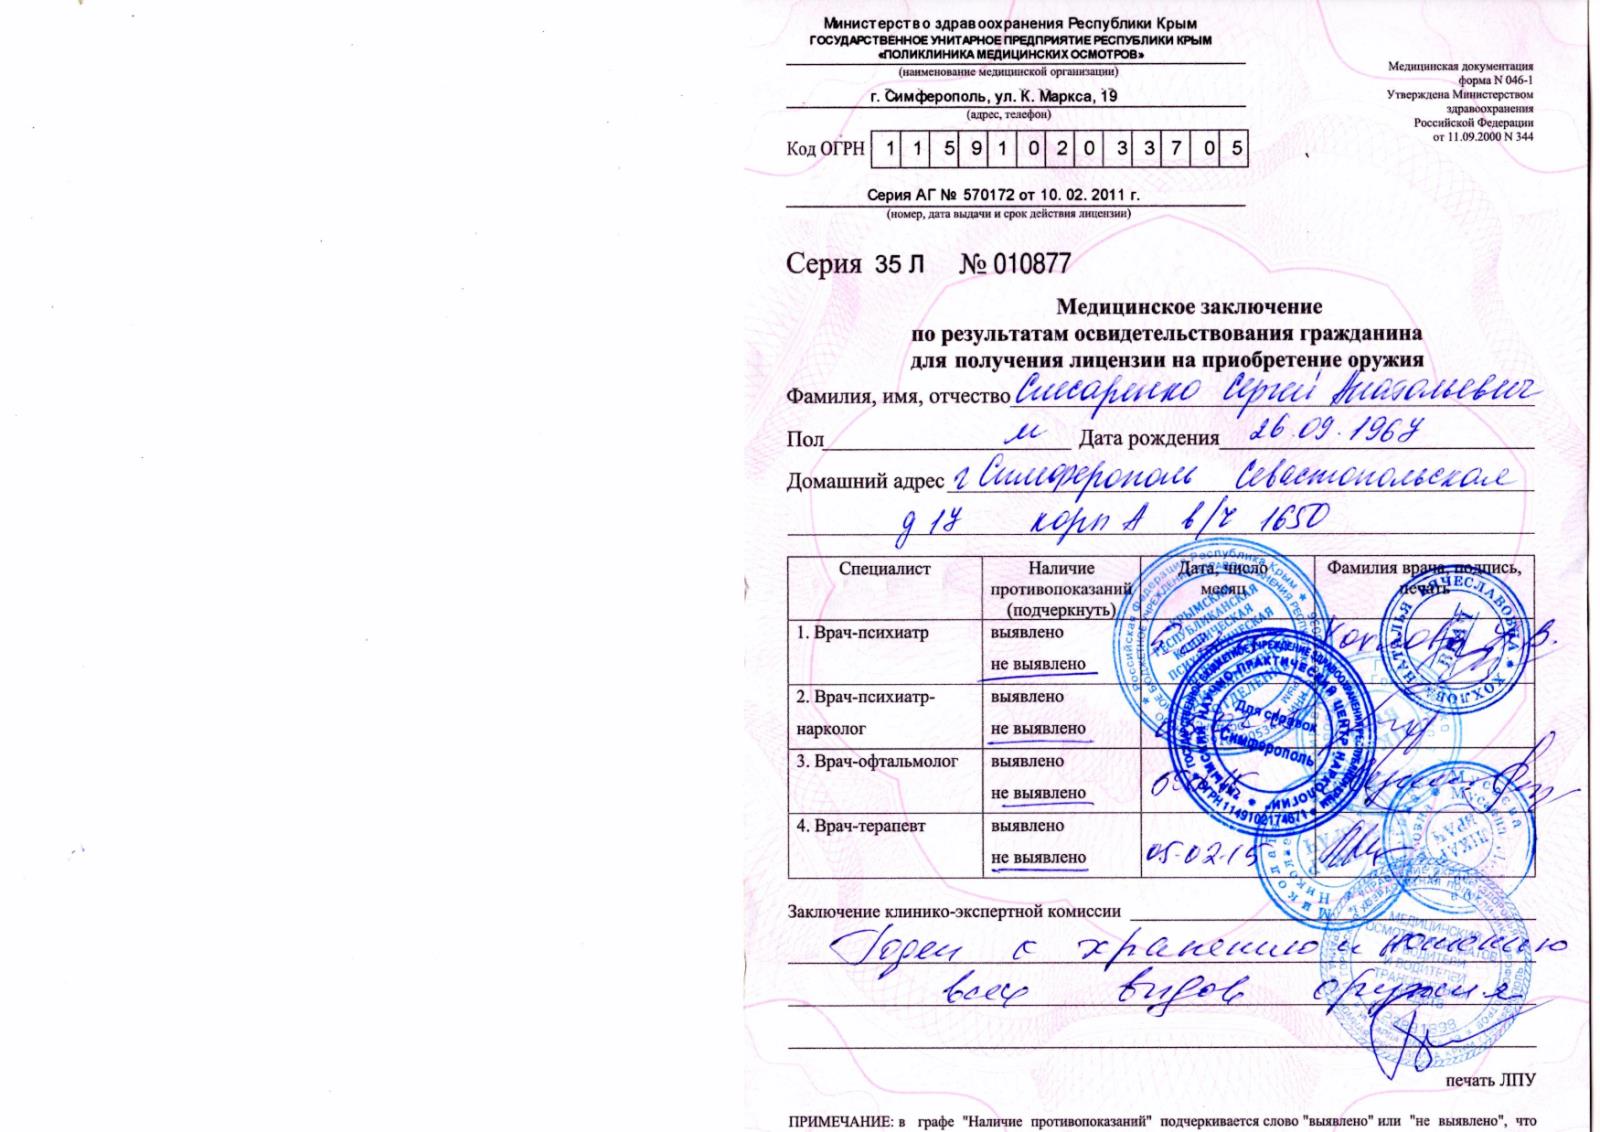 Министерство здравоохранения Республики Крым
ГОСУДАРСТВЕННОЕ УНИТАРНОЕ ПРЕДПРИЯТИЕ РЕСПУБЛИКИ КРЫМ
«ПОЛИКЛИНИКА МЕДИЦИНСКИХ ОСМОТРОВ»
(наименование медицинской организации)
г. Симферополь, ул. К. Маркса, 19
(адрес, телефон)
Медицинская документация
форма N 046-1
Утверждена Министерством
здравоохранения
Российской Федерации
от 11.09.2000 N 344
Код ОГРН 1 1 5 9 1 0 2 0 3 3 7 0 5
Серия АГ № 570172 от 10. 02. 2011 г.
(номер, дата выдачи и срок действия лицензии)
Серия 35 Л № 010877
Медицинское заключение
по результатам освидетельствования гражданина
для получения лицензии на приобретение оружия
Фамилия, имя, отчество Слисаренко Сергей Анатольевич
Пол м Дата рождения 26.09.1967
Домашний адрес г Симферополь Севастопольская
д 17 корп А в/ч 1650
Специалист Наличие противопоказаний (подчеркнуть) Дата, число месяц Фамилия врача, подпись, печать
1. Врач-психиатр выявлено
не выявлено
2. Врач-психиатр- выявлено
нарколог не выявлено
3. Врач-офтальмолог выявлено
не выявлено
4. Врач-терапевт выявлено
не выявлено 05.02.15
ХОХЛОВА НАТАЛЬЯ ВЯЧЕСЛАВОВНА
ВРАЧ
Для справок
Симферополь
ОГРН 1149102174671
Заключение клинико-экспертной комиссии
Годен к хранению и ношению
всех видов оружия
печать ЛПУ
ПРИМЕЧАНИЕ: в графе "Наличие противопоказаний" подчеркивается слово "выявлено" или "не выявлено", что